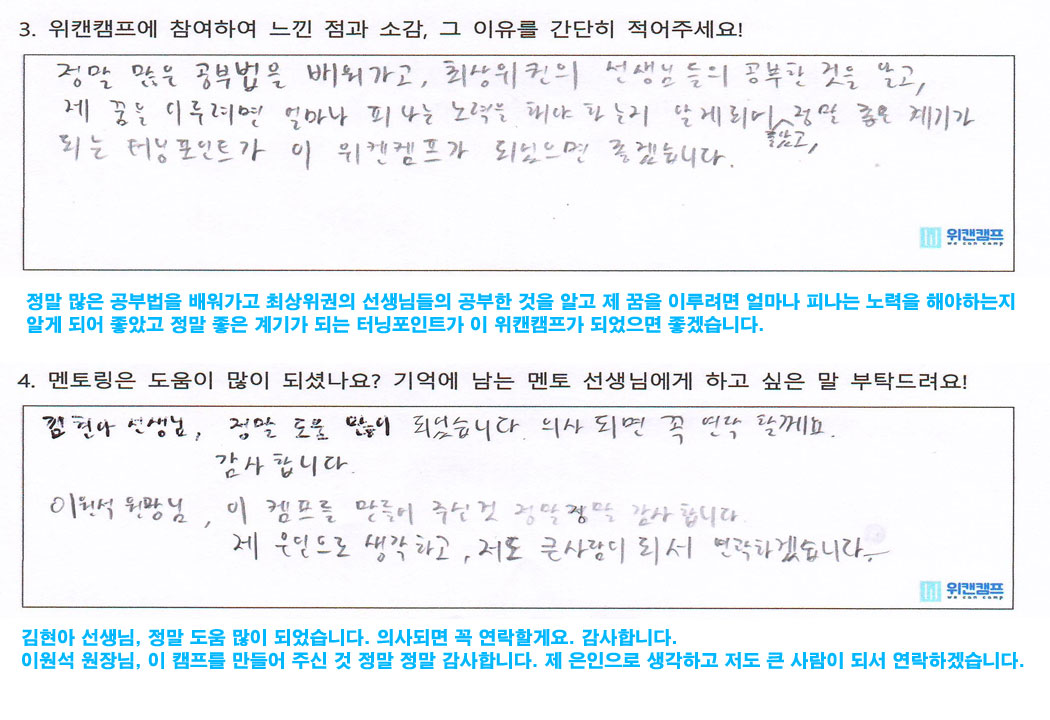 3. 위캔캠프에 참여하여 느낀 점과 소감, 그 이유를 간단히 적어주세요!
정말 많은 공부법을 배워가고, 최상위권의 선생님들의 공부한 것을 알고,
제 꿈을 이루려면 얼마나 피나는 노력을 해야 하는지 알게되어 좋았고, 정말 좋은 계기가
되는 터닝포인트가 이 위캔켐프가 되었으면 좋겠습니다.
위캔캠프
we can camp
정말 많은 공부법을 배워가고 최상위권의 선생님들의 공부한 것을 알고 제 꿈을 이루려면 얼마나 피나는 노력을 해야하는지
알게 되어 좋았고 정말 좋은 계기가 되는 터닝포인트가 이 위캔캠프가 되었으면 좋겠습니다.
4. 멘토링은 도움이 많이 되셨나요? 기억에 남는 멘토 선생님에게 하고 싶은 말 부탁드려요!
김현아 선생님, 정말 도움 많이 되었습니다. 의사 되면 꼭 연락 할께요.
감사합니다.
이원석 원장님, 이 켐프를 만들어 주신것 정말정말 감사합니다.
제 은인으로 생각하고, 저도 큰사람이 되서 연락하겠습니다.
위캔캠프
we can camp
김현아 선생님, 정말 도움 많이 되었습니다. 의사되면 꼭 연락할게요. 감사합니다.
이원석 원장님, 이 캠프를 만들어 주신 것 정말 정말 감사합니다. 제 은인으로 생각하고 저도 큰 사람이 되서 연락하겠습니다.